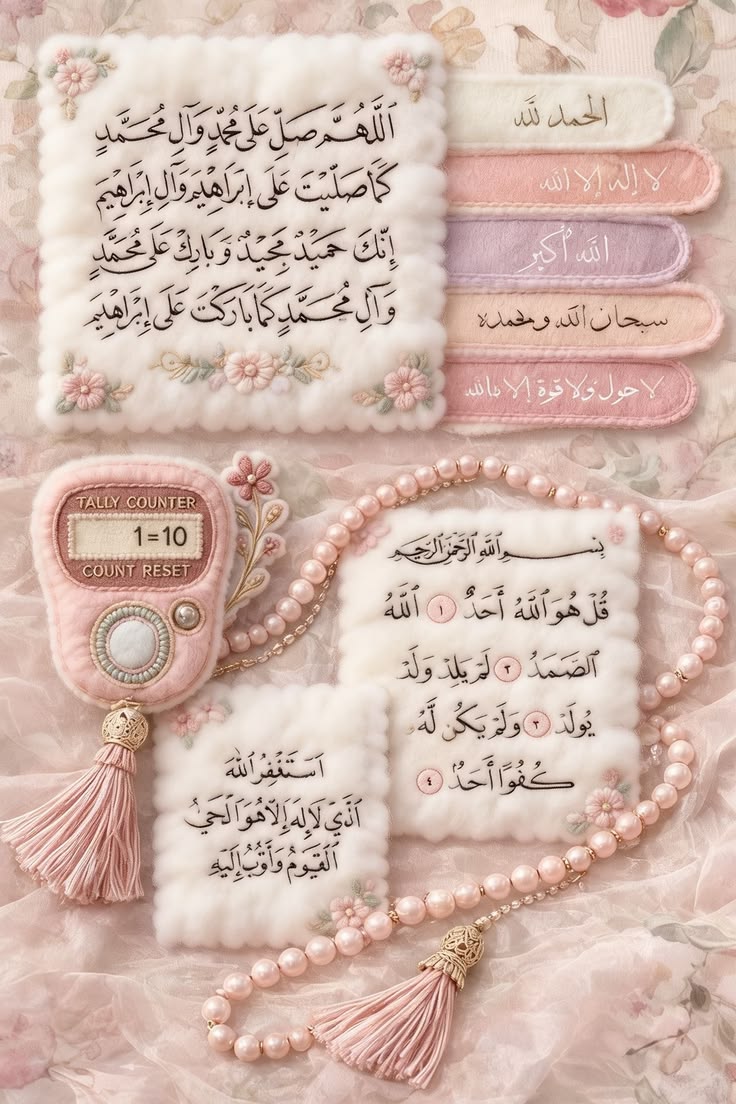 اَللّٰهُمَّ صَلِّ عَلَى مُحَمَّدٍ وَآلِ مُحَمَّدٍ
كَمَا صَلَّيْتَ عَلَى إِبْرَاهِيْمَ وَآلِ إِبْرَاهِيْمَ
إِنَّكَ حَمِيْدٌ مَجِيْدٌ وَبَارِكْ عَلَى مُحَمَّدٍ
وَآلِ مُحَمَّدٍ كَمَا بَارَكْتَ عَلَى إِبْرَاهِيْمَ
الحمد لله
لا إله إلا الله
الله أكبر
سبحان الله وبحمده
لا حول ولا قوة إلا بالله
TALLY COUNTER
1=10
COUNT RESET
بِسْمِ اللهِ الرَّحْمٰنِ الرَّحِيْمِ
قُلْ هُوَ اللهُ أَحَدٌ ١ اَللهُ
الصَّمَدُ ٢ لَمْ يَلِدْ وَلَدْ
يُولَدْ ٣ وَلَمْ يَكُنْ لَّهُ
كُفُوًا أَحَدٌ ٤
اَسْتَغْفِرُ اللهَ
الَّذِيْ لَا إِلٰهَ إِلَّا هُوَ الْحَيُّ